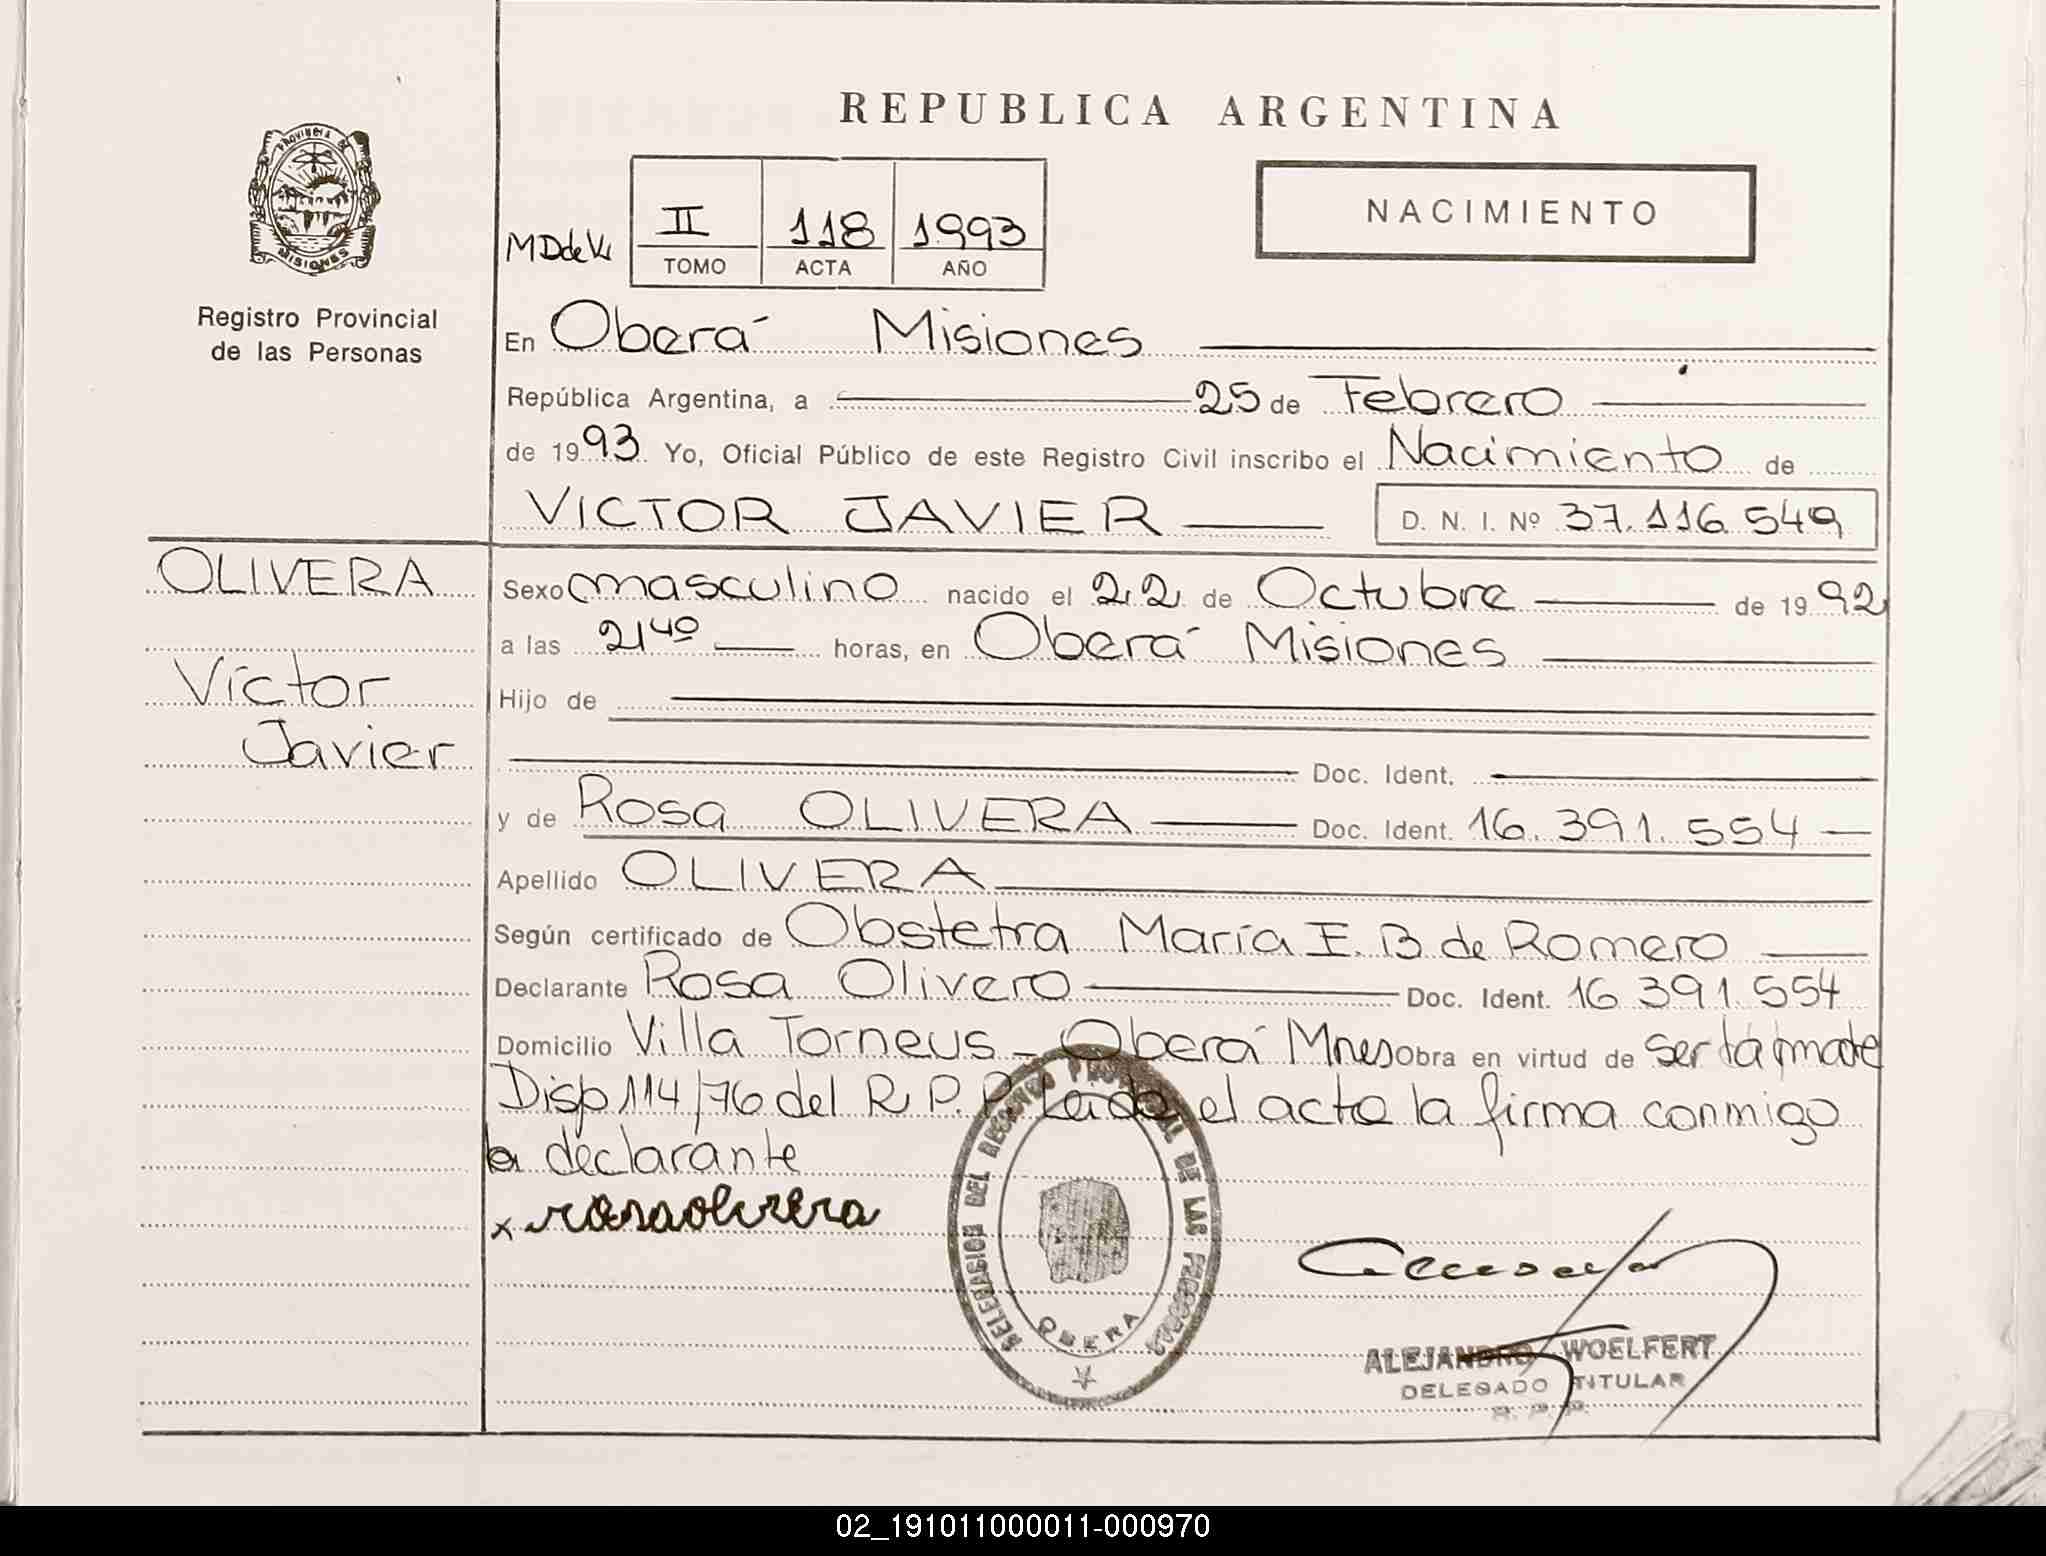 REPUBLICA ARGENTINA
PROVINCIA DE
MISIONES
Registro Provincial
de las Personas
NACIMIENTO
MDdeV.
II 118 1993
TOMO ACTA AÑO
En Oberá Misiones
República Argentina, a 25 de Febrero
de 1993. Yo, Oficial Público de este Registro Civil inscribo el Nacimiento de
VICTOR JAVIER D. N. I. Nº 37.116.549
OLIVERA
Víctor
Javier
Sexo masculino nacido el 22 de Octubre de 1992
a las 21 40 horas, en Oberá Misiones
Hijo de
Doc. Ident.
y de Rosa OLIVERA Doc. Ident. 16.391.554
Apellido OLIVERA
Según certificado de Obstetra María E. B de Romero
Declarante Rosa Olivero Doc. Ident. 16 391.554
Domicilio Villa Torneus - Oberá Mnes Obra en virtud de ser la madre
Disp 114/76 del R. P. P. Leida el acta la firma conmigo
la declarante
x rosa olivera
DELEGACION DEL REGISTRO PROVINCIAL DE LAS PERSONAS
OBERA
ALEJANDRO WOELFERT
DELEGADO TITULAR
R. P. P.
02_191011000011-000970